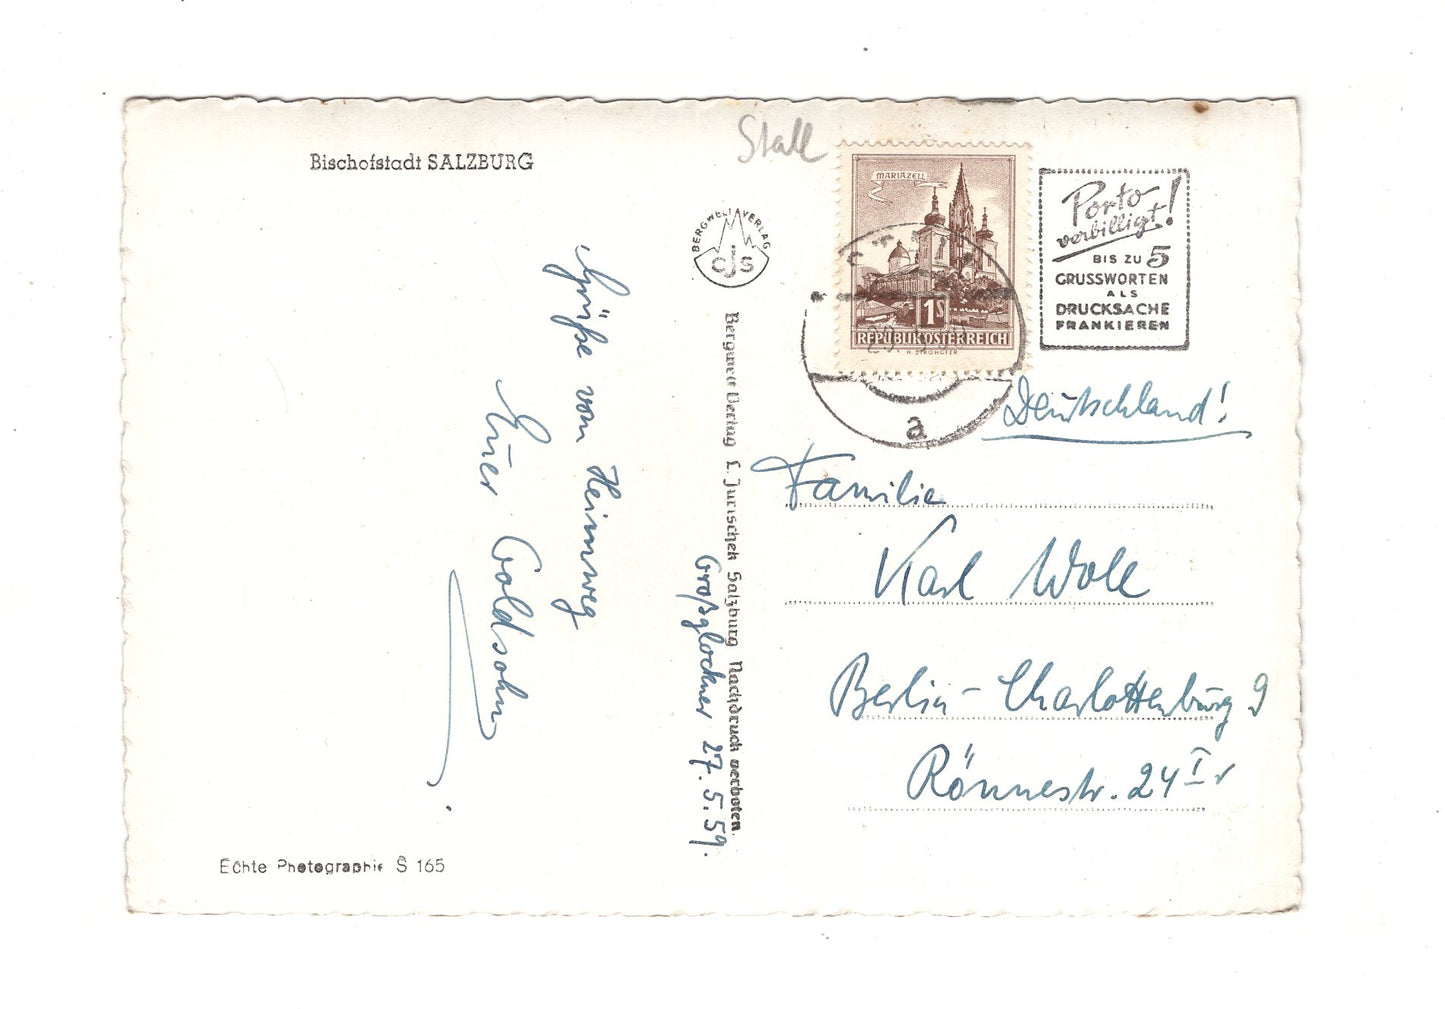 Bischofstadt SALZBURG
Stall
BERGWELT VERLAG
CJS
MARIAZELL
1S
REPUBLIK ÖSTERREICH
H. STROHOFER
a
Porto-
verbilligt!
BIS ZU 5
GRUSSWORTEN
ALS
DRUCKSACHE
FRANKIEREN
Grüße vom Heimweg
Euer Goldsohn
Bergwelt Verlag C. Jurischek Salzburg Nachdruck verboten.
Großglockner 27.5.59.
Deutschland!
Familie
Karl
Berlin-Charlottenburg 9
Rönnestr. 24 I r
Echte Photographie S 165